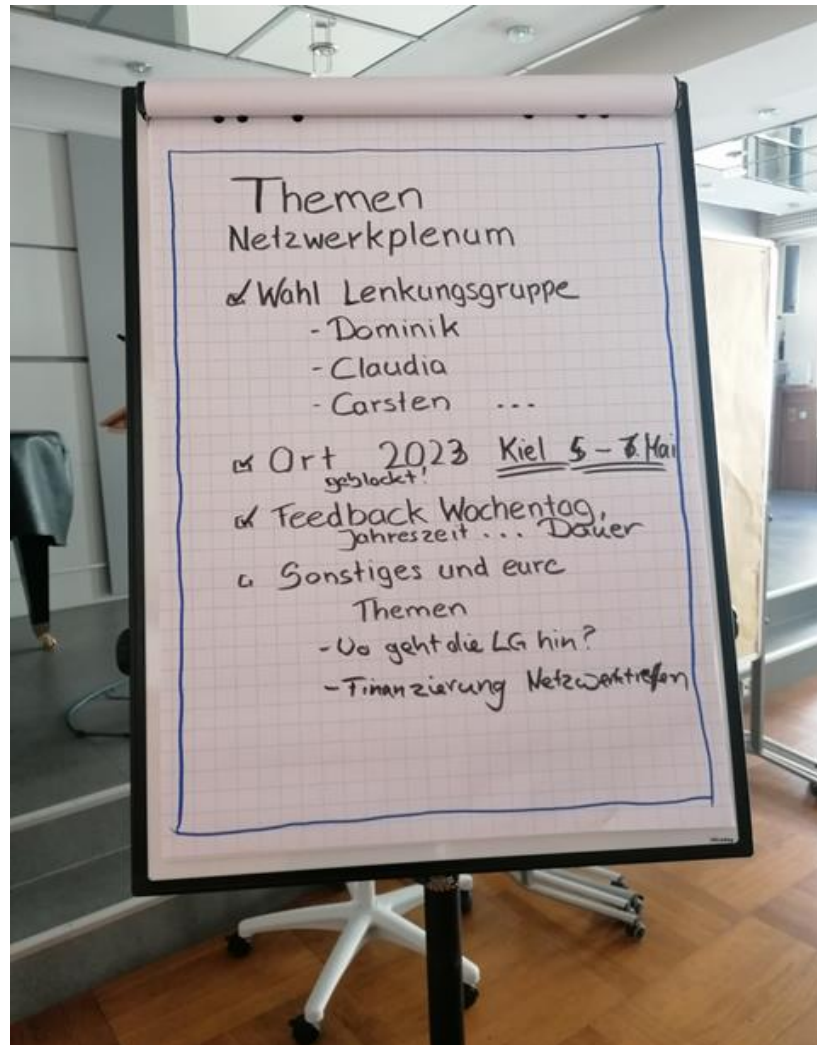 Themen
Netzwerkplenum
Wahl Lenkungsgruppe
- Dominik
- Claudia
- Carsten ...
Ort 2023 Kiel 5 - 7. Mai
geblockt!
Feedback Wochentag,
Jahreszeit ... Dauer
Sonstiges und eure
Themen
- Wo geht die LG hin?
- Finanzierung Netzwerktreffen